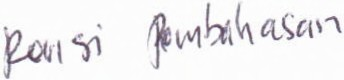 Revisi Pembahasan